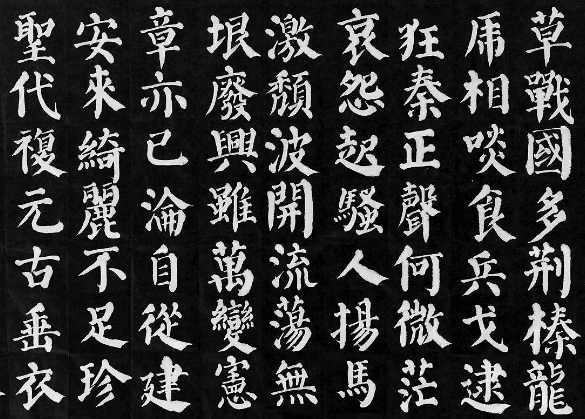 草戰國多荆榛龍
虎相啖食兵戈逮
狂秦正聲何微茫
哀怨起騷人揚馬
激頽波開流蕩無
垠廢興雖萬變憲
章亦已淪自從建
安來綺麗不足珍
聖代複元古垂衣